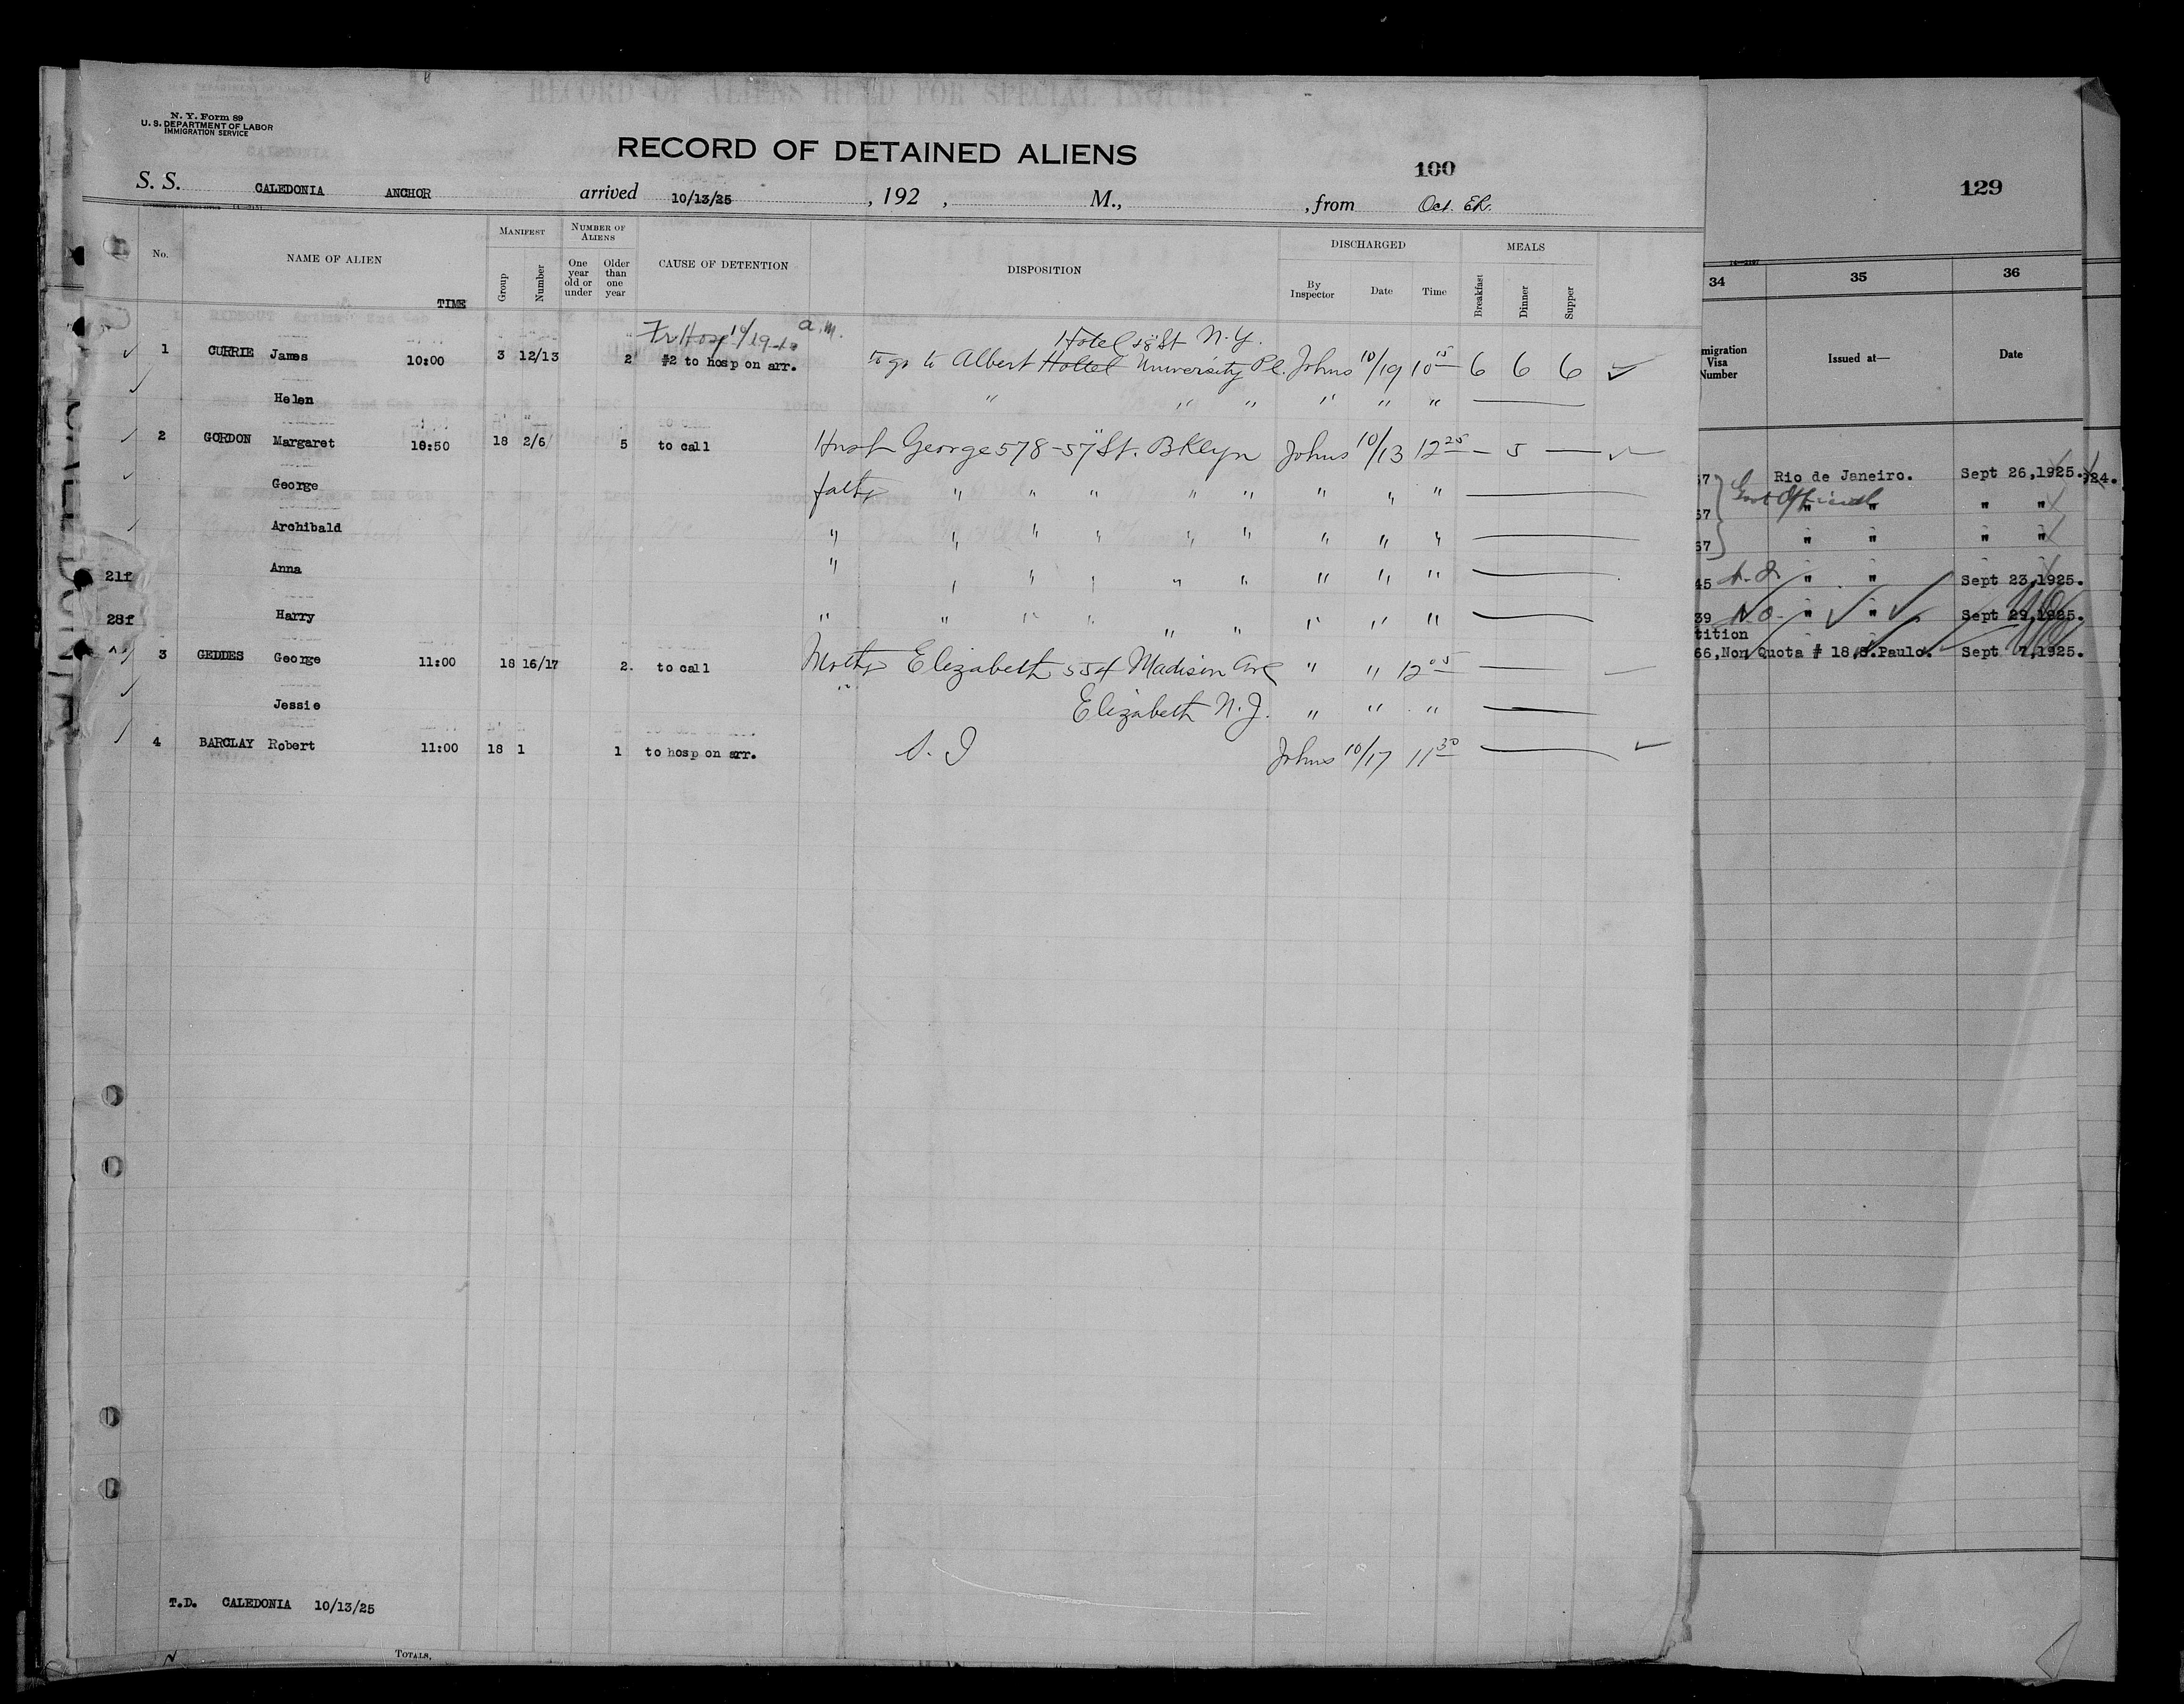 RECORD OF ALIENS HELD FOR SPECIAL INQUIRY
N. Y. Form 89
U. S. DEPARTMENT OF LABOR
IMMIGRATION SERVICE
RECORD OF DETAINED ALIENS
100
S. S. CALEDONIA ANCHOR arrived 10/13/25, 192 , M., , from Oct.
No. NAME OF ALIEN TIME MANIFEST Group Number NUMBER OF ALIENS One year old or under Older than one year CAUSE OF DETENTION DISPOSITION DISCHARGED By Inspector Date Time MEALS Breakfast Dinner Supper
Fr Hosp 10/19 a.m. Hotel St N.Y.
1 CURRIE James 10:00 3 12/13 2 #2 to hosp on arr. to go to Albert Hottel University Pl. Johns 10/19 10 15 6 6 6 ✓
Helen " " " " " "
2 GORDON Margaret 10:50 18 2/6 5 to call Husb George 578-57" St. BKlyn Johns 10/13 12 25 — 5 —
George fath " " " " " " " "
Archibald " " " " " " " " "
21f Anna " " " " " " " " "
28f Harry " " " " " " " " "
3 GEDDES George 11:00 18 16/17 2 to call Moth Elizabeth 554 Madison Ave " " 12 05
Jessie " Elizabeth N.J. " " "
4 BARCLAY Robert 11:00 18 1 1 to hosp on arr. S. I Johns 10/17 11 30
T.D. CALEDONIA 10/13/25
TOTALS,
CALEDONIA
129
34 35 36
migration Visa Number Issued at— Date
67 Rio de Janeiro. Sept 26,1925. 24.
Govt Official
67 " " " "
67 " " " "
45 " " Sept 23,1925.
39 N.O. " " Sept 29,1925.
tition
66,Non Quota # 18,S.Paulo. Sept 7,1925.